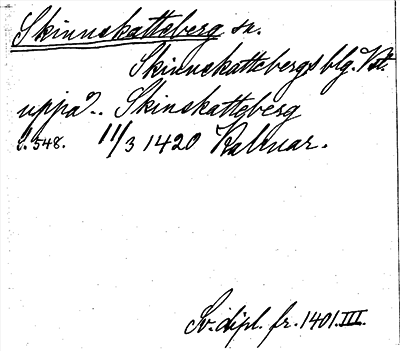 Skinnskatteberg sn.
Skinnskattebergs blg. Vstm.
uppa .. Skinskatteberg
s. 548. 11/3 1420 Kalmar.
Sv. dipl. fr. 1401. III.